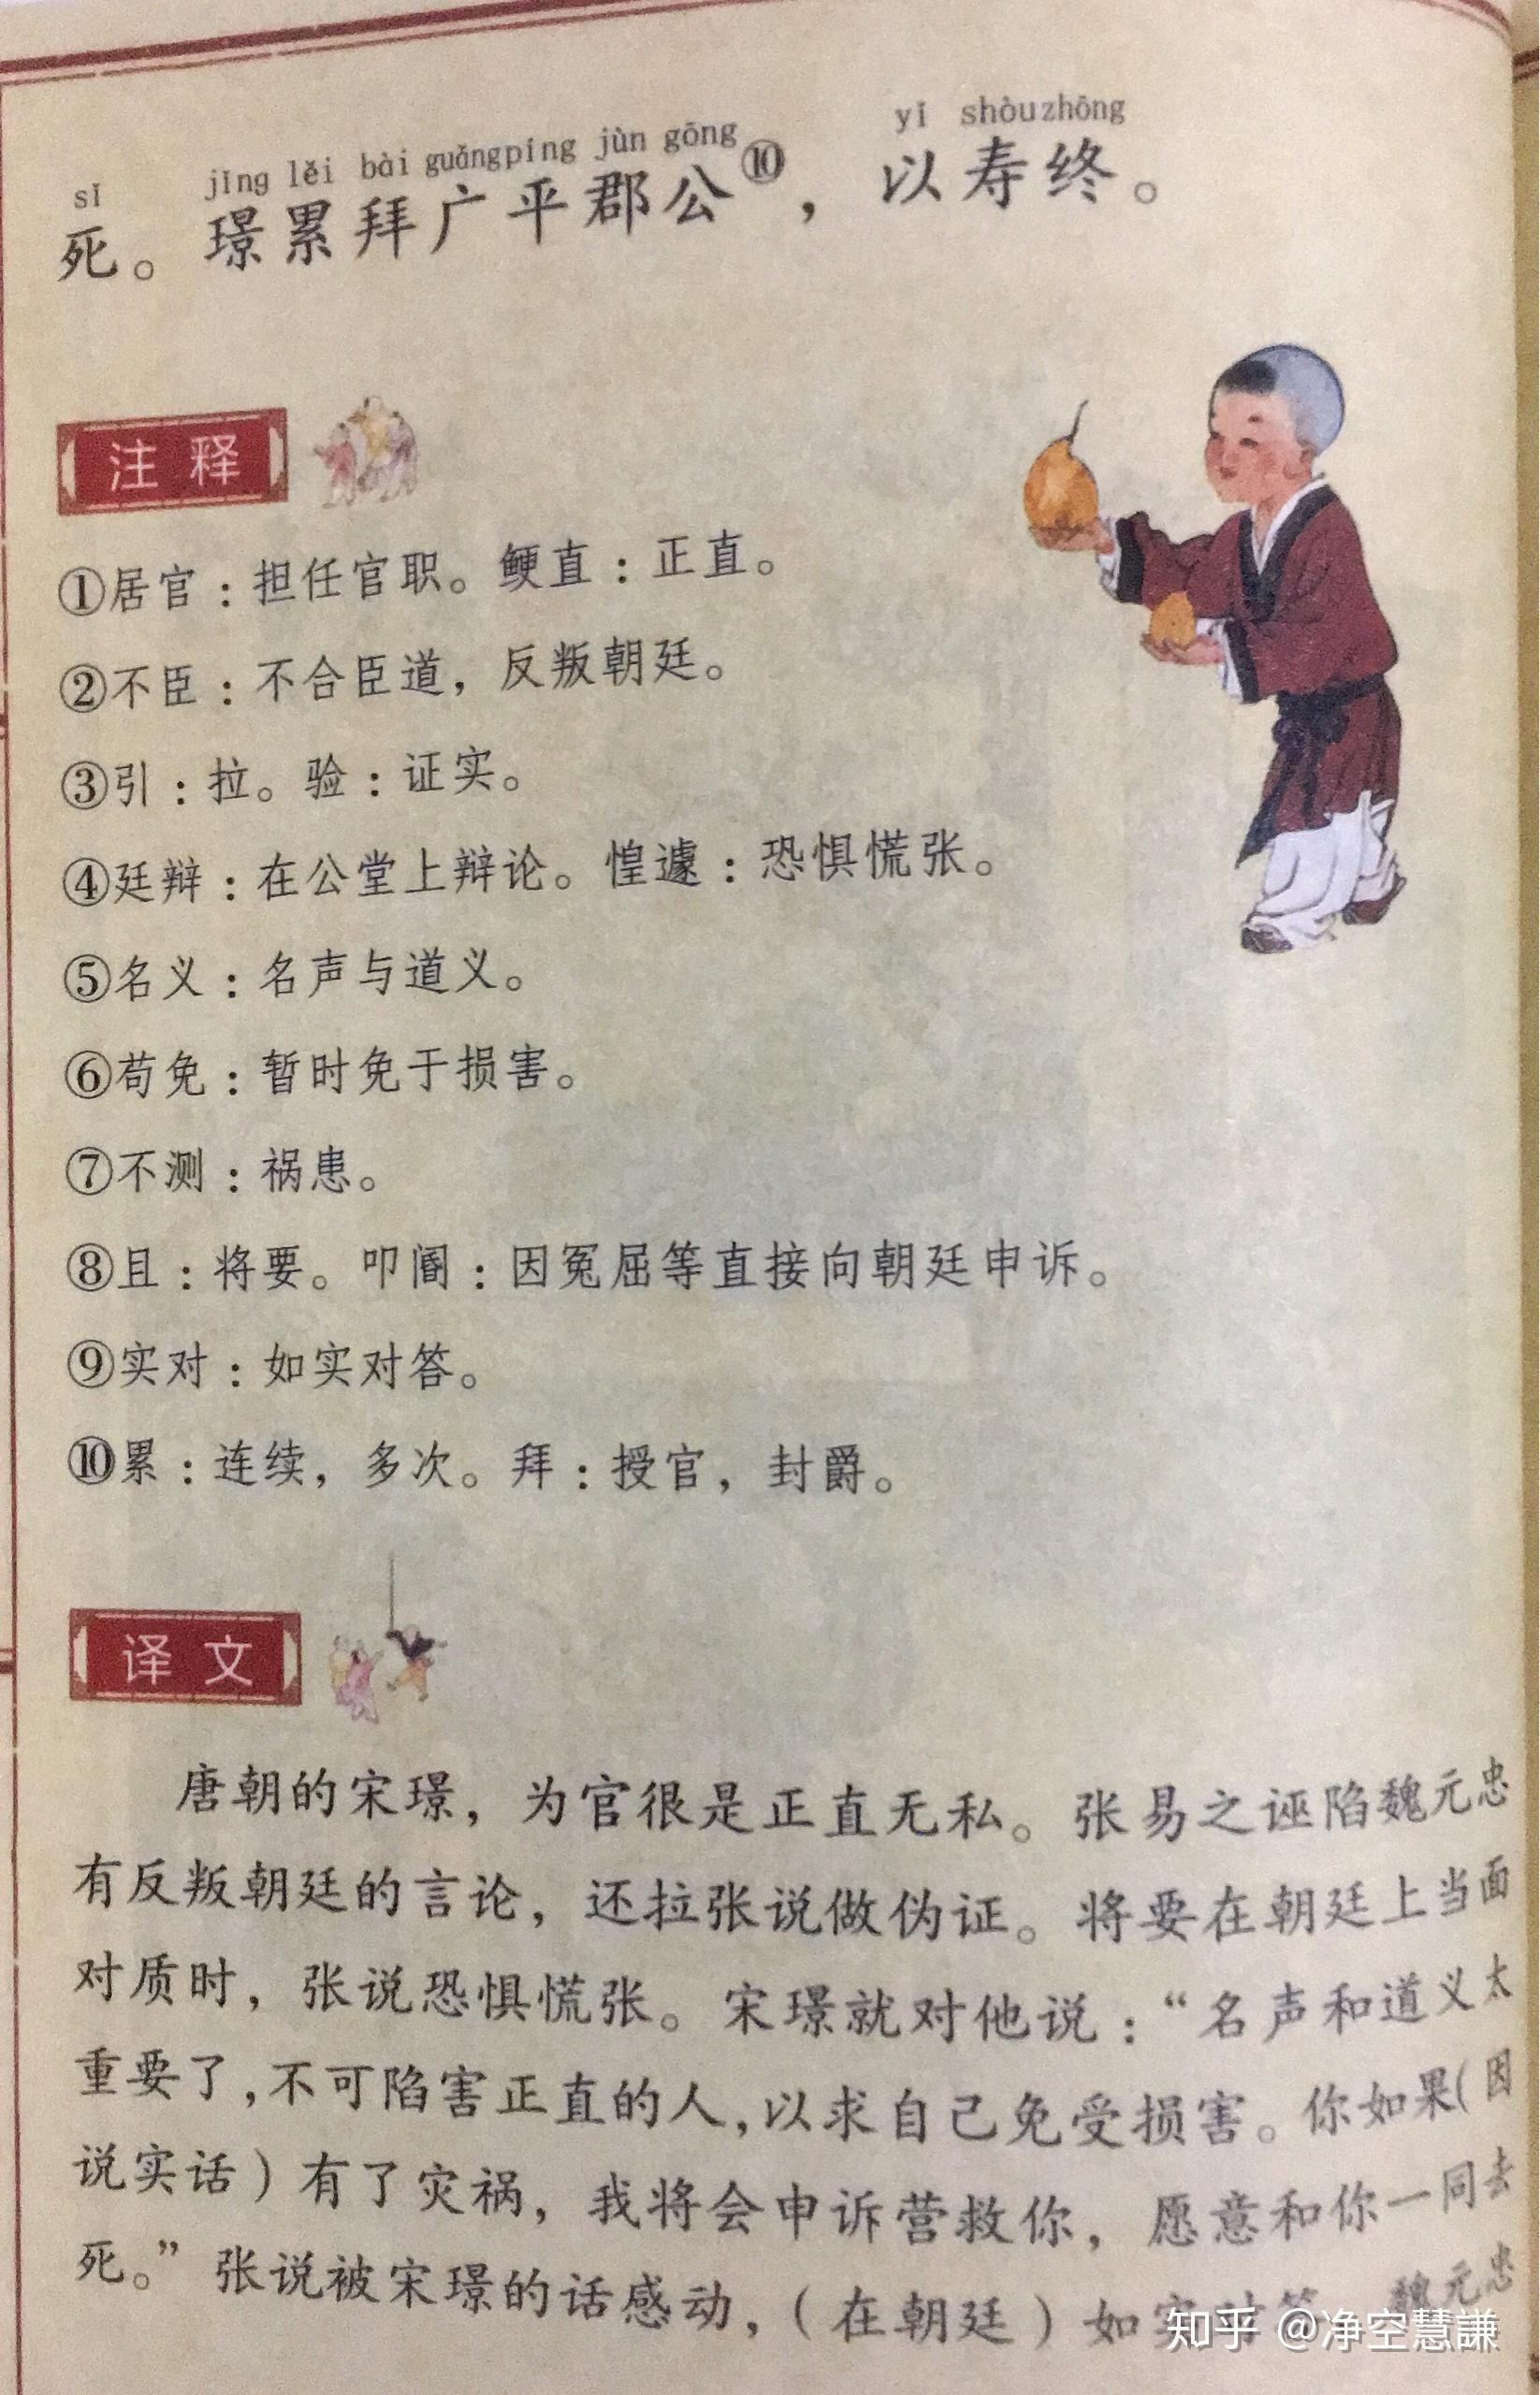 sǐ jǐng lěi bài guǎngpíng jùn gōng yǐ shòuzhōng
死。璟累拜广平郡公⑩，以寿终。
注释
①居官：担任官职。鲠直：正直。
②不臣：不合臣道，反叛朝廷。
③引：拉。验：证实。
④廷辩：在公堂上辩论。惶遽：恐惧慌张。
⑤名义：名声与道义。
⑥苟免：暂时免于损害。
⑦不测：祸患。
⑧且：将要。叩阍：因冤屈等直接向朝廷申诉。
⑨实对：如实对答。
⑩累：连续，多次。拜：授官，封爵。
译文
唐朝的宋璟，为官很是正直无私。张易之诬陷魏元忠
有反叛朝廷的言论，还拉张说做伪证。将要在朝廷上当面
对质时，张说恐惧慌张。宋璟就对他说：“名声和道义太
重要了，不可陷害正直的人，以求自己免受损害。你如果（因
说实话）有了灾祸，我将会申诉营救你，愿意和你一同去
死。”张说被宋璟的话感动，（在朝廷）如实 魏元忠
知乎 @净空慧謙